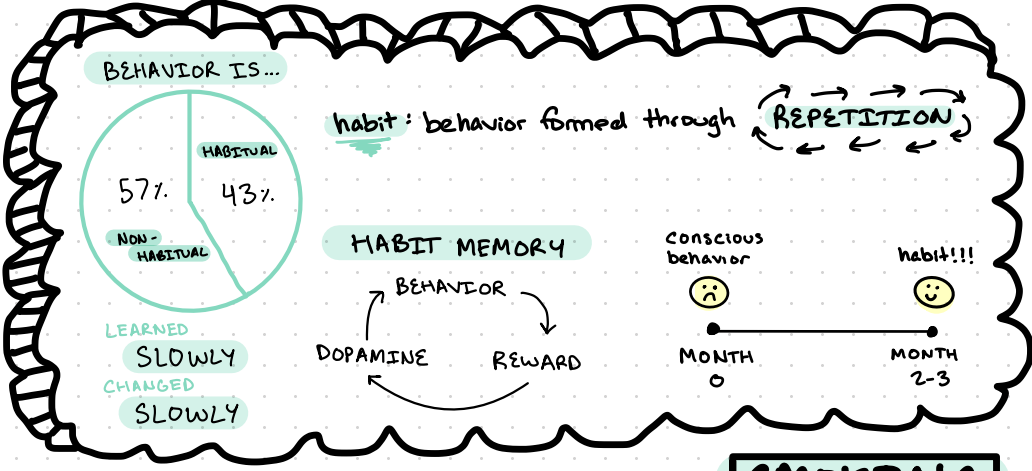 BEHAVIOR IS...
HABITUAL
57%
43%
NON-
HABITUAL
LEARNED
SLOWLY
CHANGED
SLOWLY
habit: behavior formed through REPETITION
HABIT MEMORY
BEHAVIOR
DOPAMINE
REWARD
conscious
behavior
habit!!!
MONTH
0
MONTH
2-3